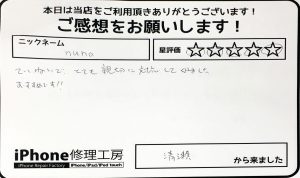 本日は当店をご利用頂きありがとうございます！
ご感想をお願いします！
ニックネーム
nuno
星評価 ☆☆☆☆☆
ていねいで、とても親切に対応して頂きました
おすすめです!!
iPhone修理工房
iPhone Repair Factory iPhone/iPad/iPod touch
清瀬 から来ました